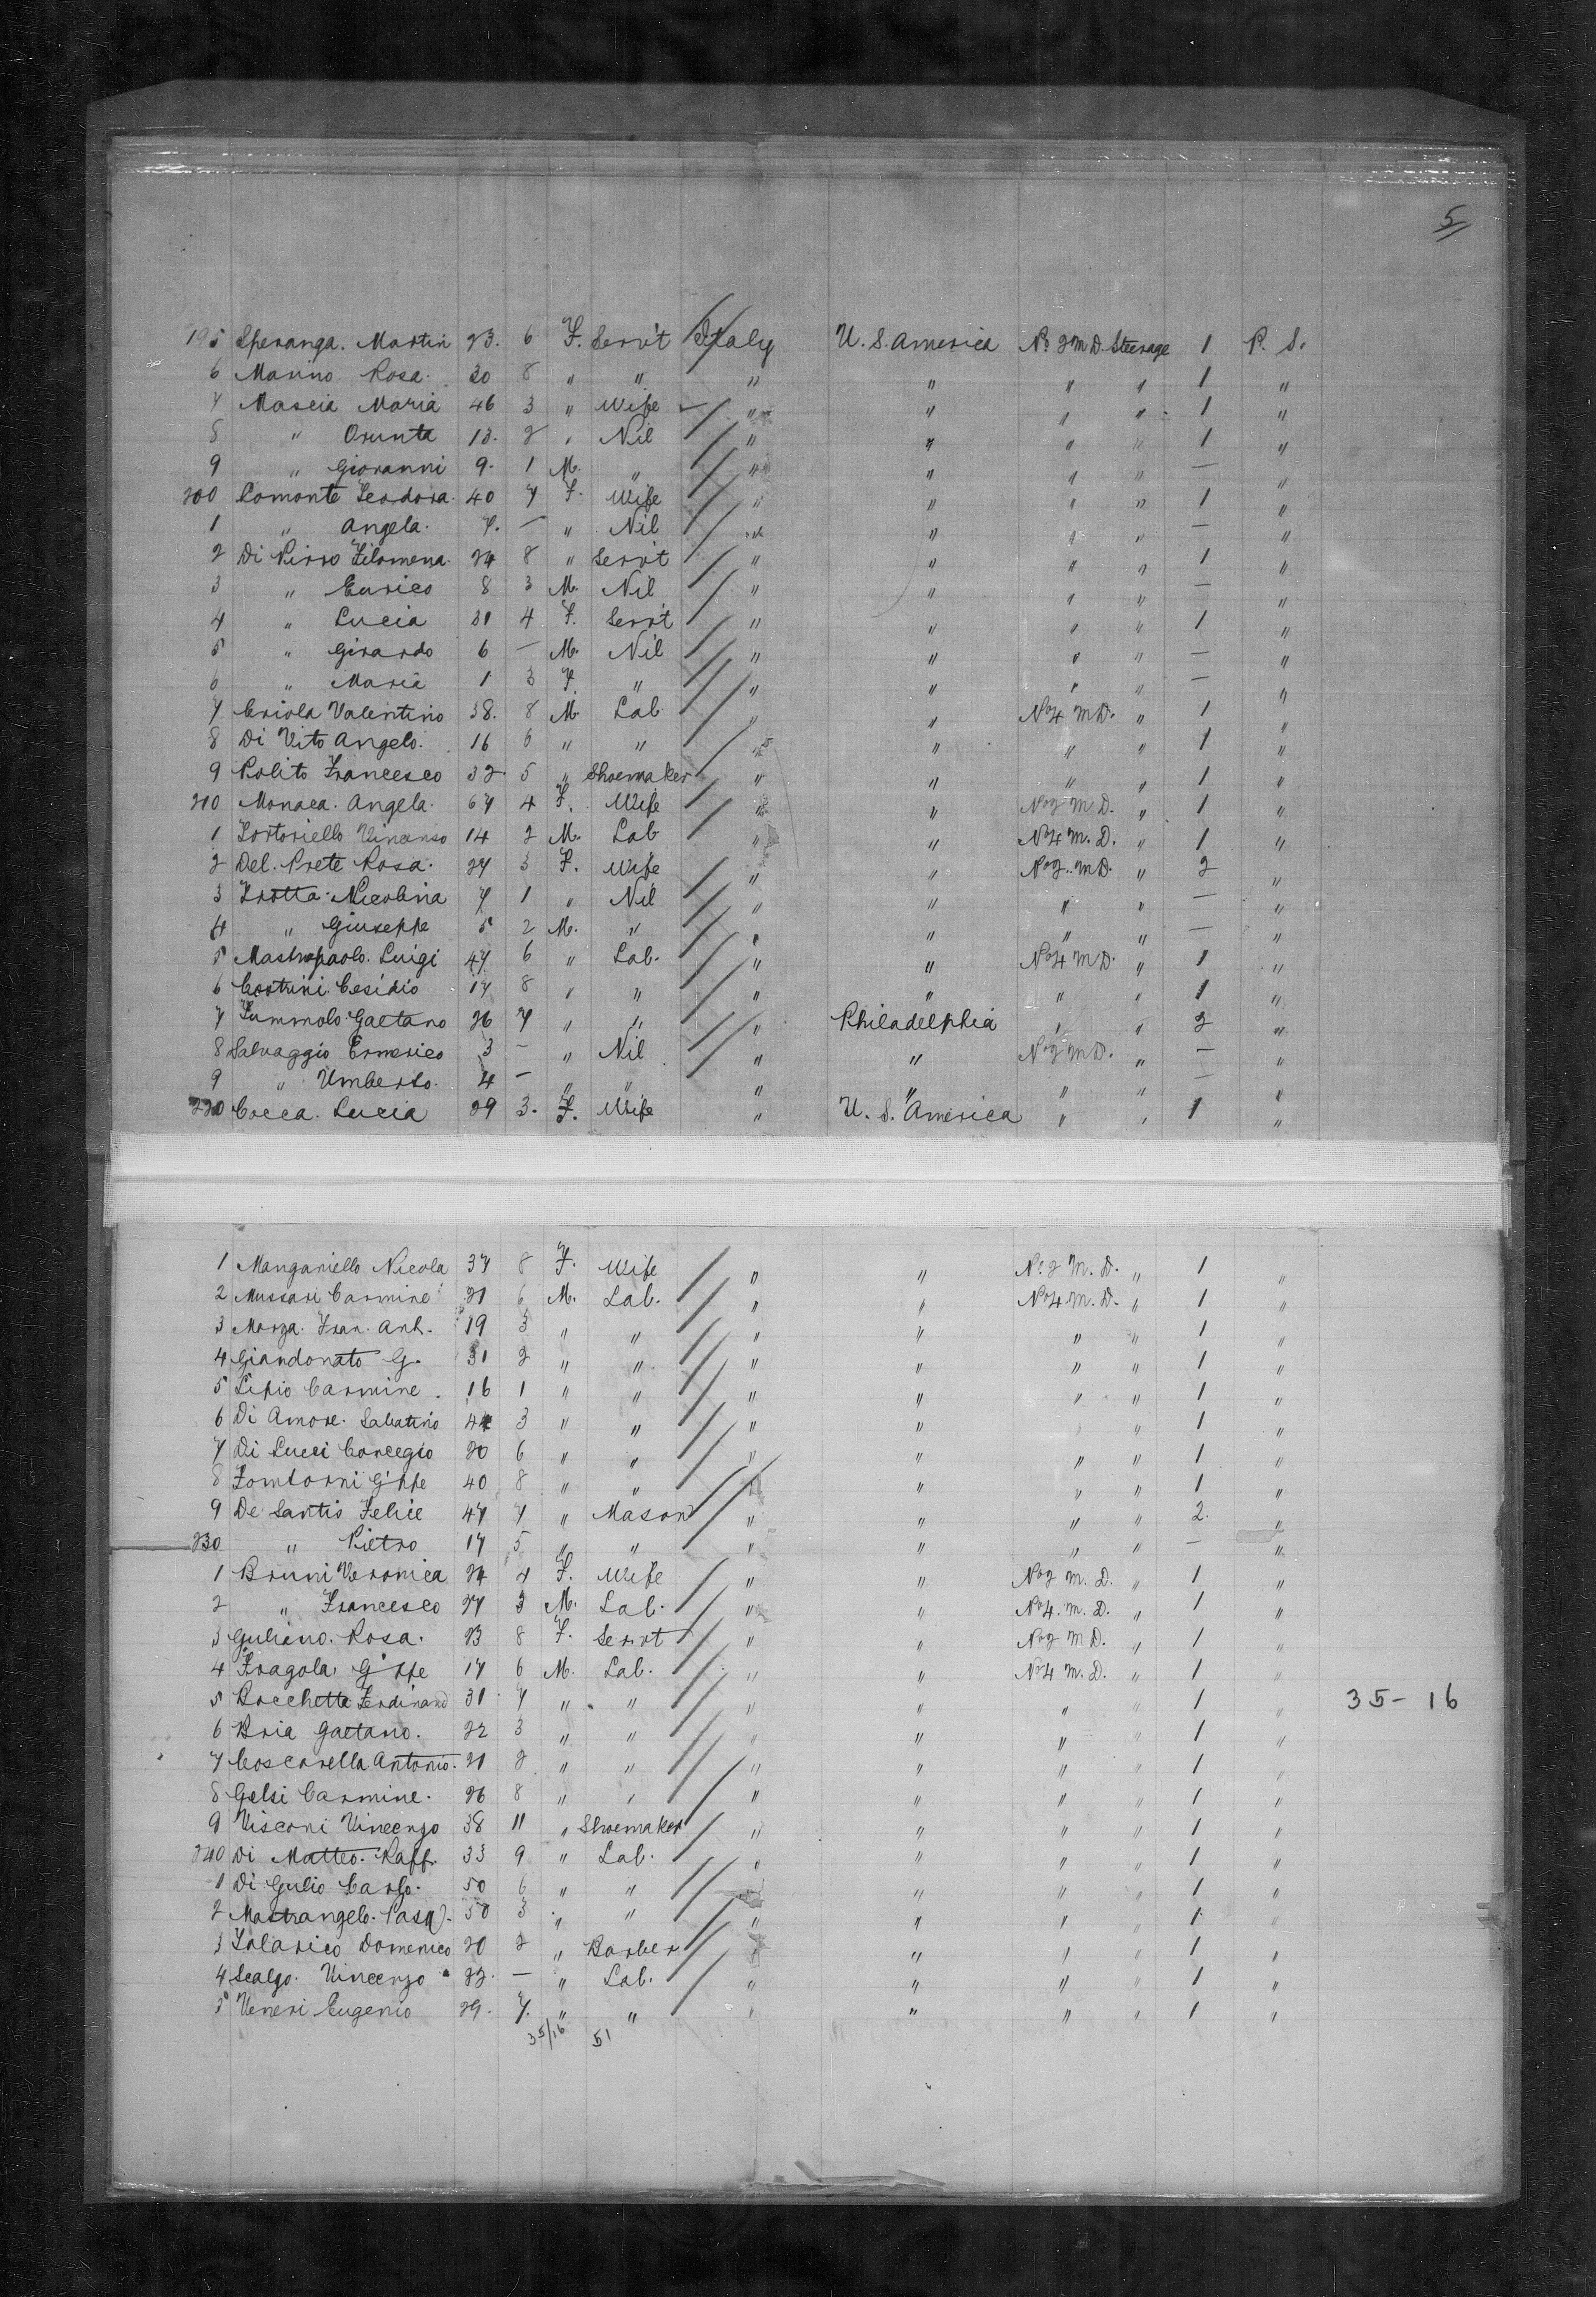 5
195 Speranza. Martin 23. 6 F. Serv't Italy U. S. America No 2 M D. Steerage 1 P. S.
6 Manno Rosa. 30 8 " " " " " " 1 "
7 Mascia Maria 46 3 " Wife " " " " 1 "
8 " Orunta 13. 2 " Nil " " " " 1 "
9 " Giovanni 9. 1 M. " " " " " — "
200 Comonte Teodora. 40 7 F. Wife " " " " 1 "
1 " Angela. 7. — " Nil " " " " — "
2 Di Pirro Filomena. 24 8 " Serv't " " " " 1 "
3 " Eurico 8 3 M. Nil " " " " — "
4 " Lucia 31 4 F. Serv't " " " " 1 "
5 " Girardo 6 — M. Nil " " " " — "
6 " Maria 1 3 F. " " " " " — "
7 Criola Valentino 38. 8 M. Lab. " " No 4 M D. " 1 "
8 Di Vito Angelo. 16 6 " " " " " " 1 "
9 Polito Francesco 32. 5 " Shoemaker " " " " 1 "
210 Monaca. Angela. 67 4 F. Wife " " No 2 M. D. " 1 "
1 Tortoriello Vincenso 14 2 M. Lab " " No 4 M. D. " 1 "
2 Del. Prete Rosa. 27 3 F. Wife " " No 2. M D. " 2 "
3 Trotta. Nicolina 7 1 " Nil " " " " — "
4 " Giuseppe 5 2 M. " " " " " — "
5 Mastropaolo. Luigi 47 6 " Lab. " " No 4 M D. " 1 "
6 Contini Cesidio 17 8 " " " " " " 1 "
7 Tummolo Gaetano 26 7 " " " Philadelphia " " 2 "
8 Salvaggio Ermerico 3 — " Nil " " No 2 M D. " — "
9 " Umberto. 4 — " " " " " " — "
220 Cocca. Lucia 29 3. F. Wife " U. S. America " " 1 "
1 Manganiello Nicola 37 8 F. Wife " " No. 2 M. D. " 1 "
2 Mussari Carmine 21 6 M. Lab. " " No 4. M. D. " 1 "
3 Morza. Fran. Ant. 19 3 " " " " " " 1 "
4 Giandonato G. 31 2 " " " " " " 1 "
5 Lipio Carmine. 16 1 " " " " " " 1 "
6 Di Amore. Sabatino 44 3 " " " " " 1 "
7 Di Lucci Concegio 20 6 " " " " " " 1 "
8 Fomtorni G'ppe 40 8 " " " " " 1 "
9 De Santis Felice 47 7 " Mason " " " " 2. "
230 " Pietro 17 5 " " " " " " — "
1 Bruni Veronica 24 4 F. Wife " " No 2 M. D. " 1 "
2 " Francesco 27 3 M. Lab. " " No 4. M. D. " 1 "
3 Guliano. Rosa. 23 8 F. Serv't " " No 2 M D. " 1 "
4 Fragola G'ppe 17 6 M. Lab. " " No 4 M. D. " 1 "
5 Rocchetta Ferdinand 31 7 " " " " " 1 " 35 - 16
6 Bria Gaetano. 22 3 " " " " " 1 "
7 Coscarella Antonio. 21 2 " " " " " " 1 "
8 Gelsi Carmine. 26 8 " " " " " " 1 "
9 Visconi Vincenzo 38 11 " Shoemaker " " " " 1 "
240 Di Matteo. Raff. 33 9 " Lab. " " " " 1 "
1 Di Gulio Carlo. 50 6 " " " " " 1 "
2 Mastrangelo. Pasq. 50 3 " " " " " " 1 "
3 Talarico Domenico 20 2 " Barber " " " " 1 "
4 Scalzo. Vincenzo 22. — " Lab. " " " " 1 "
5 Veneri Eugenio 29. 7. " " " " " " 1 "
35/16 51